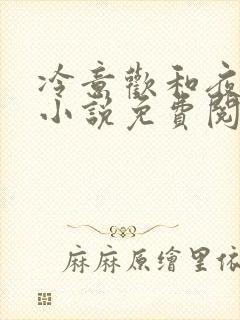 冷意歡和夜
小說免費閱
麻麻原繪里依